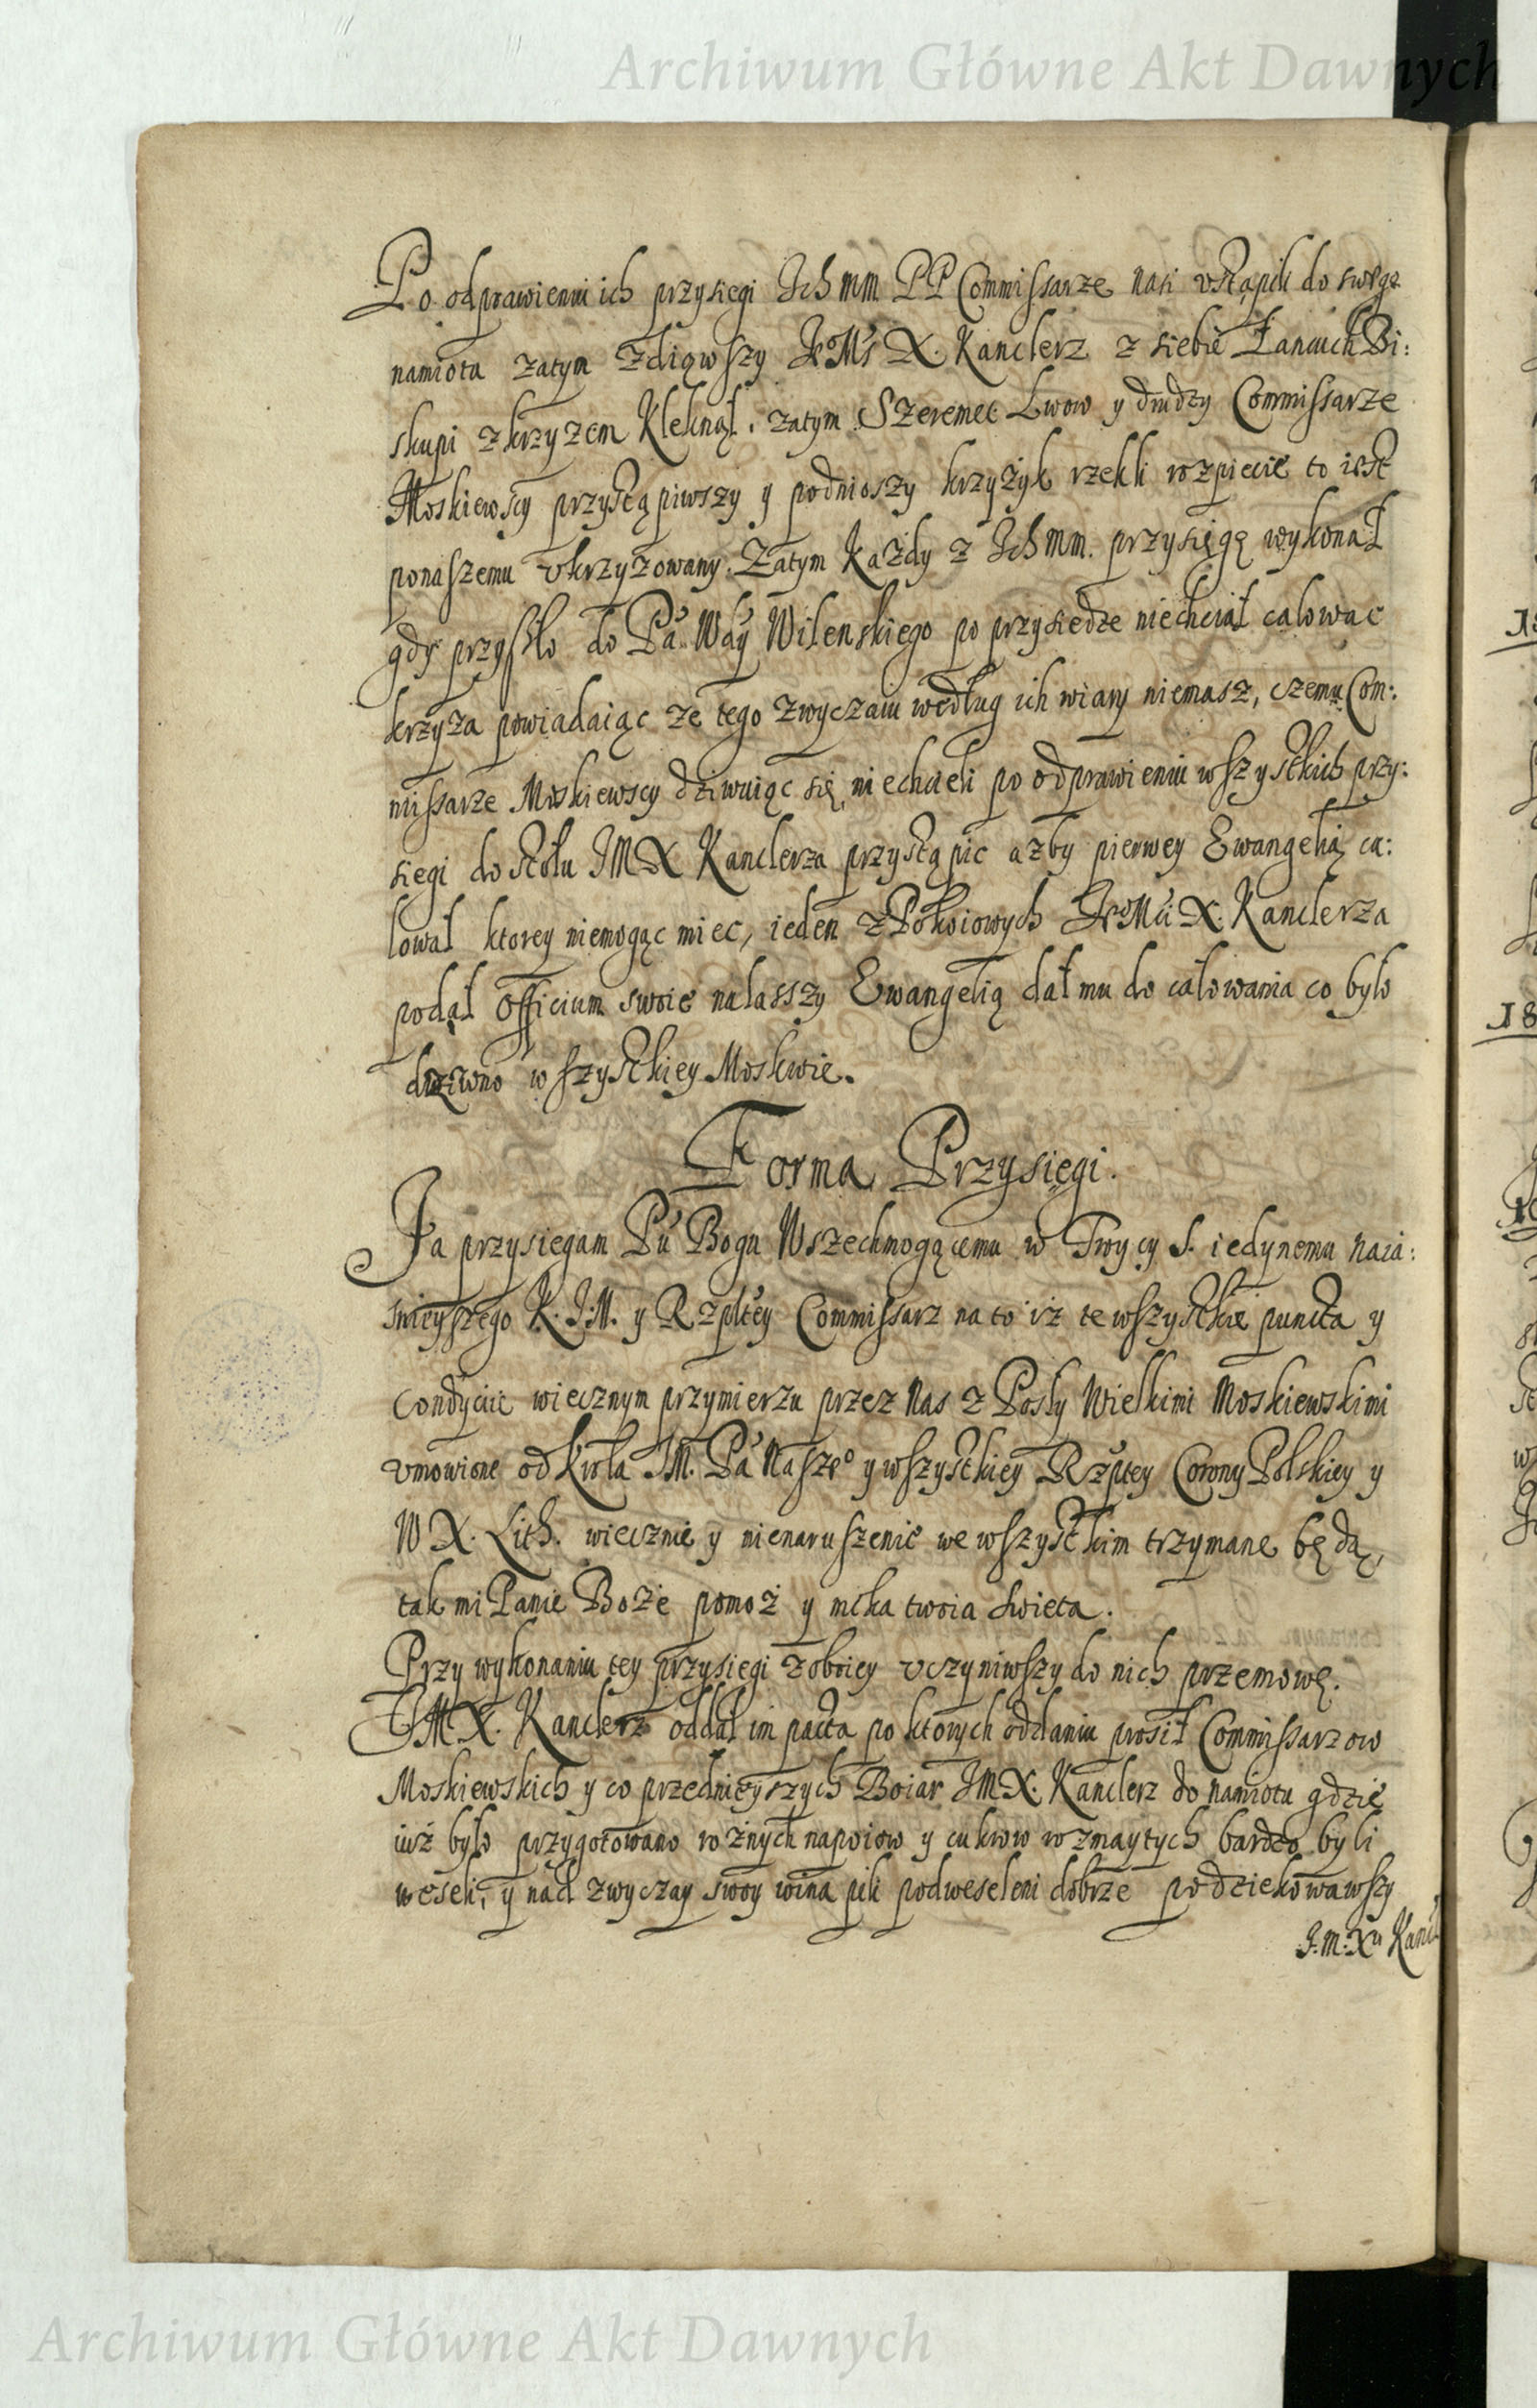 Archiwum Główne Akt Dawnych
Po odprawieniu ich przysiegi Ich mm PP Commissarze nasi vstąpili do swego
namiotu zatym zdiąwszy JeoMć X. Kanclerz z siebie Łancuch Bi:
skupi z krzyzem Kleknął. zatym Szeremet Lwow y drudzy Commissarze
Moskiewscy przystąpiwszy y podnioszy krzyżyk rzekli rozpiecie to iest
ponaszemu vkrzyzowany. Zatym Każdy z Ich mm. przysięgę wykonał
gdy przyszło do Pa Way Wilenskiego po przysiedze niechciał calowac
krzyża powiadaiąc że tego zwyczaiu według ich wiary niemasz, czemu Com:
missarze Moskiewscy dziwuiąc się, niechcieli po odprawieniu wszystkich przy:
siegi do stołu JMX Kanclerza przystąpic azby pierwey Ewangelią ca:
lował ktorey niemogąc miec, ieden z Pokoiowych JeoMci X. Kanclerza
podał officium swoie nalasszy Ewangelią dał mu do całowania co było
dziwno wszystkiey Moskwie.
Forma Przysięgi.
Ja przysiegam Pu Bogu Wszechmogącemu w Troycy S. iedynemu naia:
snieyszego K. J.M. y Rzpltey Commissarz na to iż te wszystkie puncta y
condycie wiecznym przymierzu przez Nas z Posły Wielkimi Moskiewskimi
vmowione od Krola JM. Pa Naszeo y wszystkiey Rzptey Corony Polskiey y
W X. Lith. wiecznie y nienaruszenie we wszystkim trzymane będą,
tak mi Panie Boże pomoż y męka twoia swieta.
Przy wykonaniu tey przysiegi z oboiey vczyniwszy do nich przemowę.
JM X. Kanclerz oddał im pacta po ktorych oddaniu prosił Commissarzow
Moskiewskich y co przednieyszych Boiar JMX. Kanclerz do namiotu gdzie
iuż było przygotowano rożnych napoiow y cukrow rozmaytych bardzo byli
weseli, y nad zwyczay swoy wina pili podweseleni dobrze podziekowawszy
J.M. Xu Kancl
Archiwum Główne Akt Dawnych